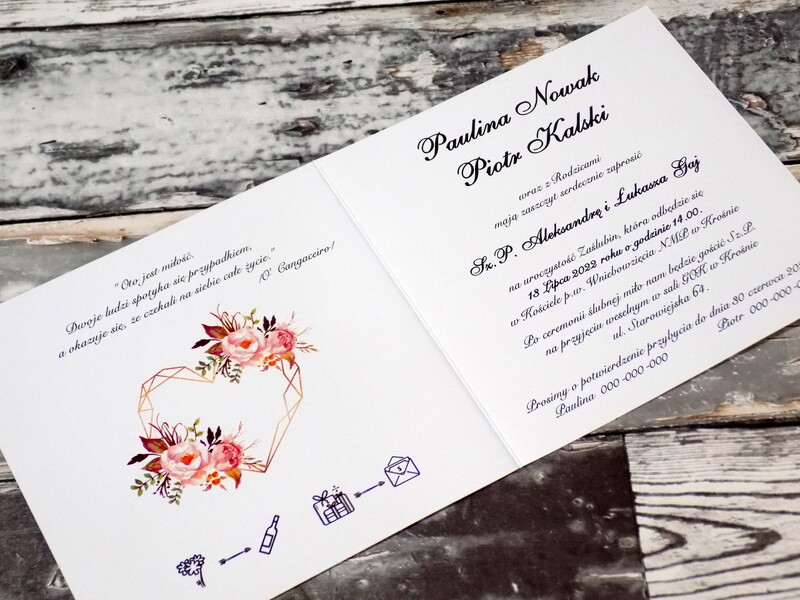 "Oto jest miłość.
Dwoje ludzi spotyka się przypadkiem,
a okazuje się, że czekali na siebie całe życie."
O' Cangaceiro!
Paulina Nowak
Piotr Kalski
wraz z Rodzicami
mają zaszczyt serdecznie zaprosić
Sz.P. Aleksandrę i Łukasza Gaj
na uroczystość Zaślubin, która odbędzie się
13 Lipca 2022 roku o godzinie 14.00.
w Kościele p.w. Wniebowzięcia NMP w Krośnie
Po ceremonii ślubnej miło nam będzie gościć Sz.P.
na przyjęciu weselnym w sali GOK w Krośnie
ul. Starowiejska 64.
Prosimy o potwierdzenie przybycia do dnia 30 czerwca
Paulina 000-000-000 Piotr 000-000